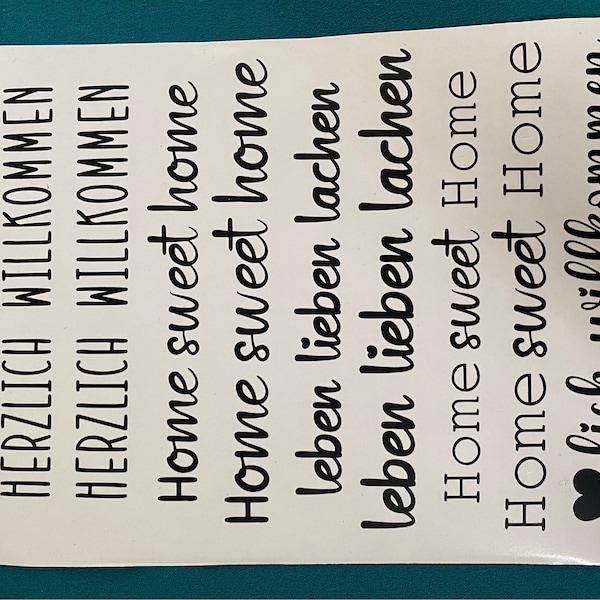 HERZLICH WILLKOMMEN
HERZLICH WILLKOMMEN
Home sweet home
Home sweet home
leben lieben lachen
leben lieben lachen
Home sweet Home
Home sweet Home
lich willkommen